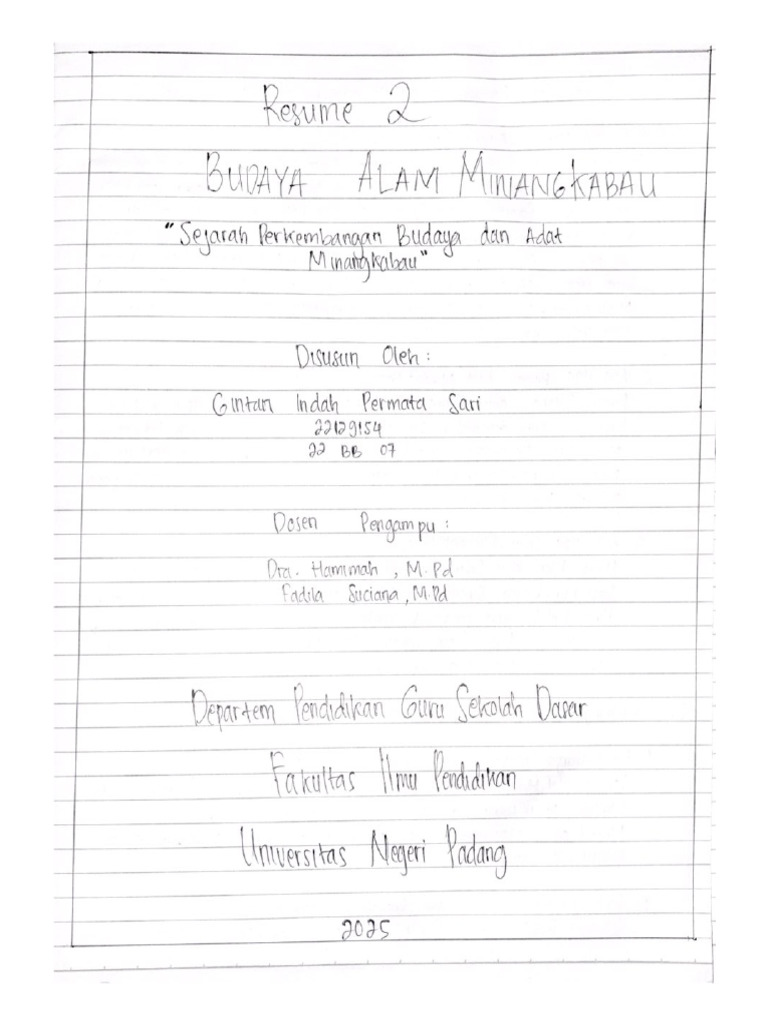 Resume 2
BUDAYA ALAM MINANGKABAU
"Sejarah Perkembangan Budaya dan Adat
Minangkabau"
Disusun Oleh :
Gintan Indah Permata Sari
22129154
22 BB 07
Dosen Pengampu :
Dra. Hamimah , M.Pd
Fadila Suciana, M.Pd
Departem Pendidikan Guru Sekolah Dasar
Fakultas Ilmu Pendidikan
Universitas Negeri Padang
2025